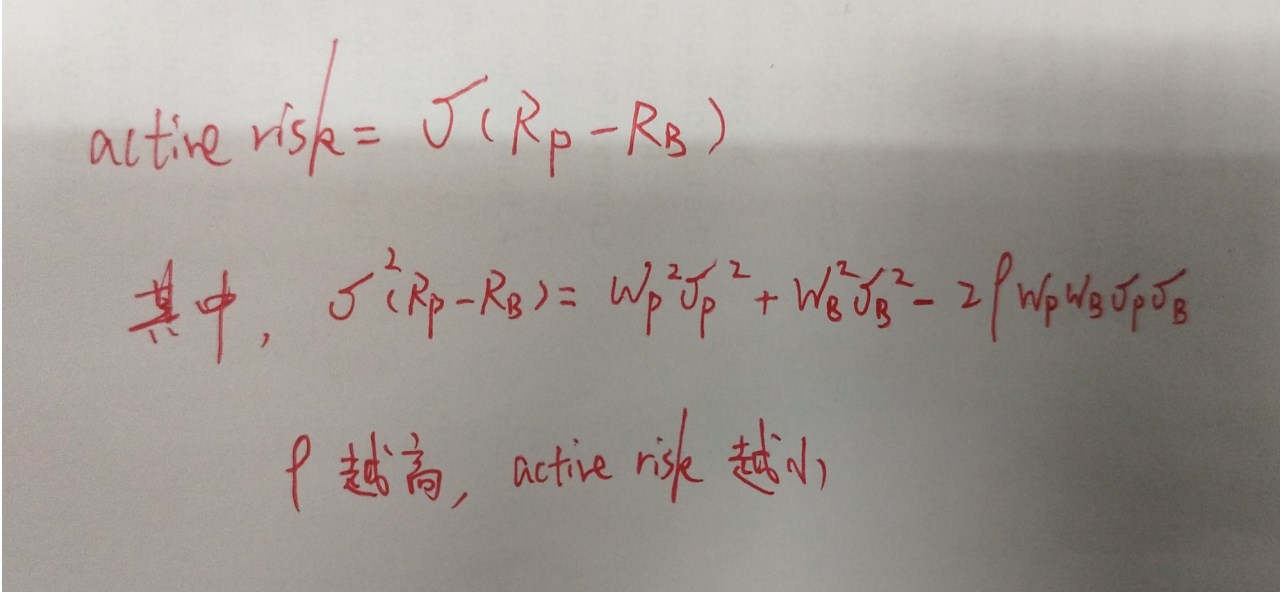 active risk = σ(R_P - R_B)
其中, σ²(R_P - R_B) = W_P²σ_P² + W_B²σ_B² - 2ρW_PW_Bσ_Pσ_B
ρ越高, active risk 越小